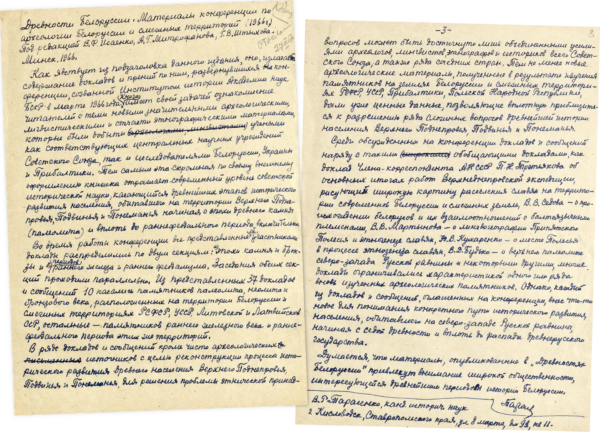 Древности Белоруссии. Материалы конференции по
археологии Белоруссии и смежных территорий (1966г.)
Под редакцией В.Ф. Исаенко, А.Г. Митрофанова, Г.В. Штыхова.
Минск, 1966.
Как явствует из подзаголовка данного издания, оно
докладов и прений по ним, развернувшихся на кон-
ференции, созванной Институтом истории Академии наук
БССР в марте 1966 своей задачей ознакомление
читателей с теми новыми значительными археологическими,
лингвистическими и отчасти этнографическими материалами,
которые были добыты учеными
как соответствующих центральных научных учреждений
Советского Союза, так и исследователями Белоруссии, Украины
и Прибалтики. Тем самым эта скромная по своему внешнему
оформлению книжка отражает современный уровень советской
исторической науки, касающейся древнейших этапов исторического
развития населения, обитавшего на территории Верхнего Поднеп-
ровья, Подвинья и Понеманья начиная с эпохи древнего камня
(палеолита) и вплоть до раннефеодального периода включительно.
Во время работы конференции все представленные участниками
доклады распределились по двум секциям: эпохи камня и брон-
зы и железа и ранней феодализма. Заседания обеих сек-
ций проходили параллельно. Из представленных 37 докладов
и сообщений 10 касались памятников палеолита, неолита и
бронзового века, расположенных на территории Белоруссии и
смежных территориях РСФСР, УССР, Литовской и Латвийской
ССР, остальные – памятников раннего железного века и ранне-
феодального периода этих же территорий.
В ряде докладов и сообщений кроме чисто археологических
источников с целью реконструкции процесса исто-
рического развития древнего населения Верхнего Поднепровья,
Подвинья и Понеманья, для решения проблемы этнической принад-
-3-
3
вопросов может быть достигнуто лишь объединенными усили-
ями археологов, лингвистов, этнографов и историков всего Совет-
ского Союза, а также ряда соседних стран. Тем не менее новые
археологические материалы, полученные в результате изучения
памятников на землях Белоруссии и смежных территори-
ях РСФСР, УССР, Прибалтики, Польской Народной Республики,
дали уже ценные данные, позволяющие вплотную приблизить-
ся к разрешению ряда сложных вопросов древнейшей истории
населения Верхнего Поднепровья, Подвинья и Понеманья.
Среди обсужденных на конференции докладов и сообщений
наряду с такими обобщающими докладами как
доклад Член-корреспондента АН ССР П.Н. Третьякова об
основных итогах работ Верхнеднепровской экспедиции,
рисующий широкую картину расселения славян на террито-
рии современной Белоруссии и смежных земель, В.В. Седова – о про-
исхождении белорусов и их взаимоотношении с балтоязычными
племенами, В.В. Мартынова – о лингвогеографии Припятского
Полесья и этногенезе славян, Ю.В. Кухаренко – о месте Полесья
в процессе этногенеза славян, В.Д. Будько – о верхнем палеолите
северо-запада Русской равнины и некоторыми другими, многие
доклады ограничивались характеристикой одного или ряда
вновь изученных археологических памятников. Однако, каждый
из докладов и сообщений, оглашенных на конференции, внес что-то
новое для понимания конкретного пути исторического развития,
населения, обитавшего на северо-западе Русской равнины,
начиная с седой древности и вплоть до распада древнерусского
государства.
Думается, что материалы, опубликованные в „Древностях
Белоруссии" привлекут внимание широкой общественности,
интересующейся древнейшим периодом истории Белоруссии.
В.Р. Тарасенко, канд. историч. наук
г. Кисловодск, Ставропольского края, ул. 8 марта,